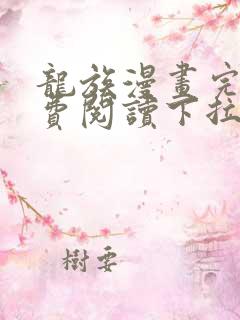 龍族漫畫完
費閱讀下拉
樹要